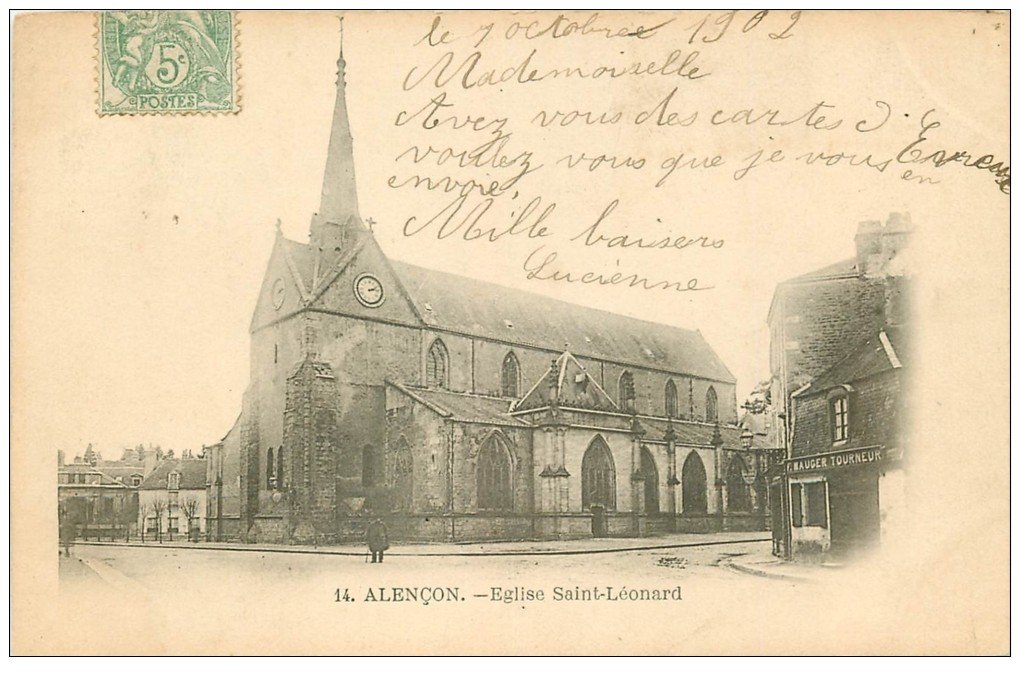 5c
POSTES
le 7 octobre 1902
Mademoiselle
Avez vous des cartes d'Evreux
voulez vous que je vous en
envoie,
Mille baisers
Lucienne
MAUGER TOURNEUR
14. ALENÇON. — Eglise Saint-Léonard